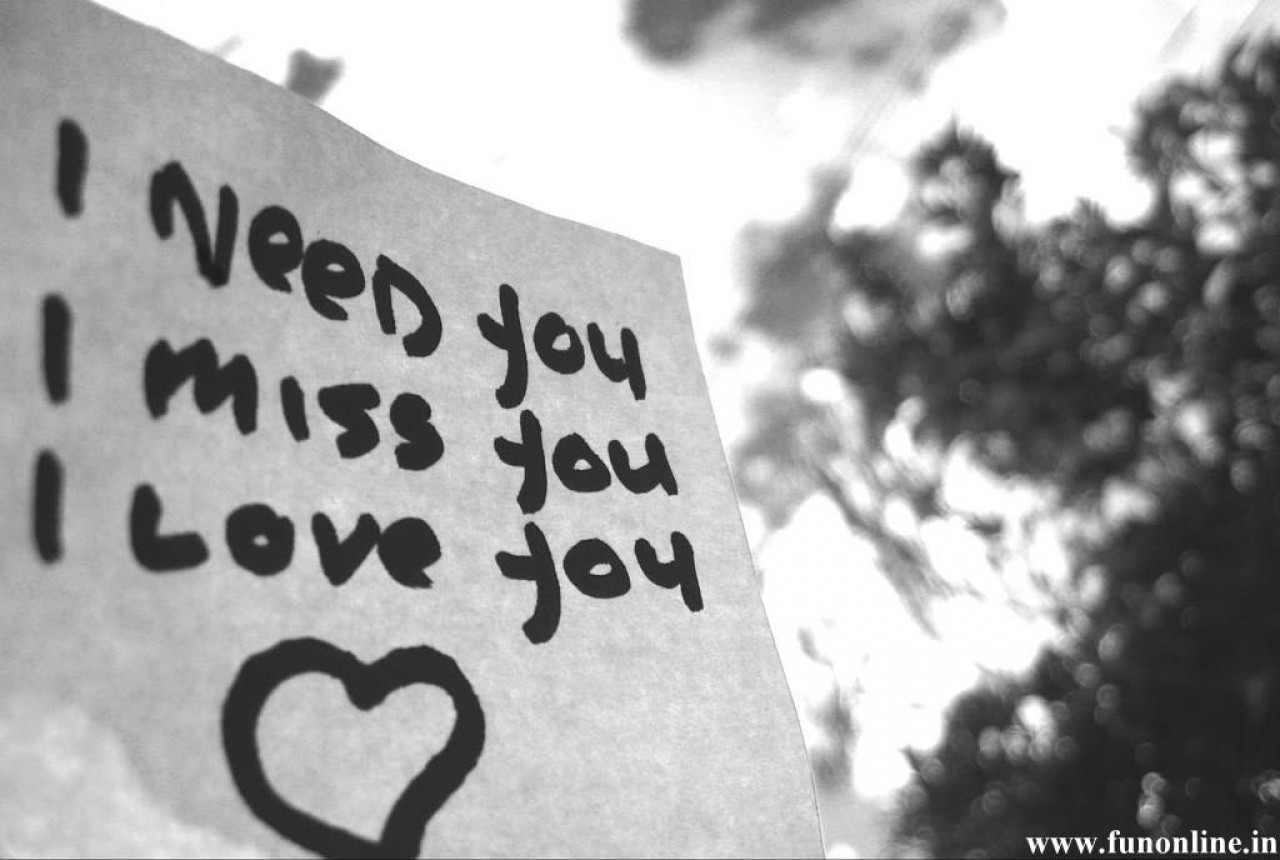 I NeeD you
I miss you
I Love you
www.funonline.in